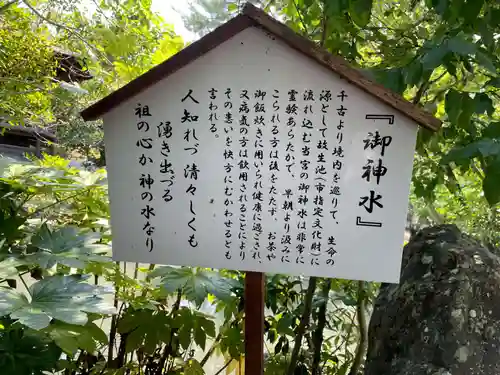 『御神水』
千古より境内を巡りて、生命の
源として放生池(市指定文化財)に
流れ込む当宮の御神水は非常に
霊験あらたかで、早朝より汲みに
こられる方は後をたたず、お茶や
御飯炊きに用いられ健康に過ごされ、
又病気の方は飲用されることにより
その患いを快方にむかわせるとも
言われる。
人知れづ清々しくも
湧き出づる
祖の心か神の水なり